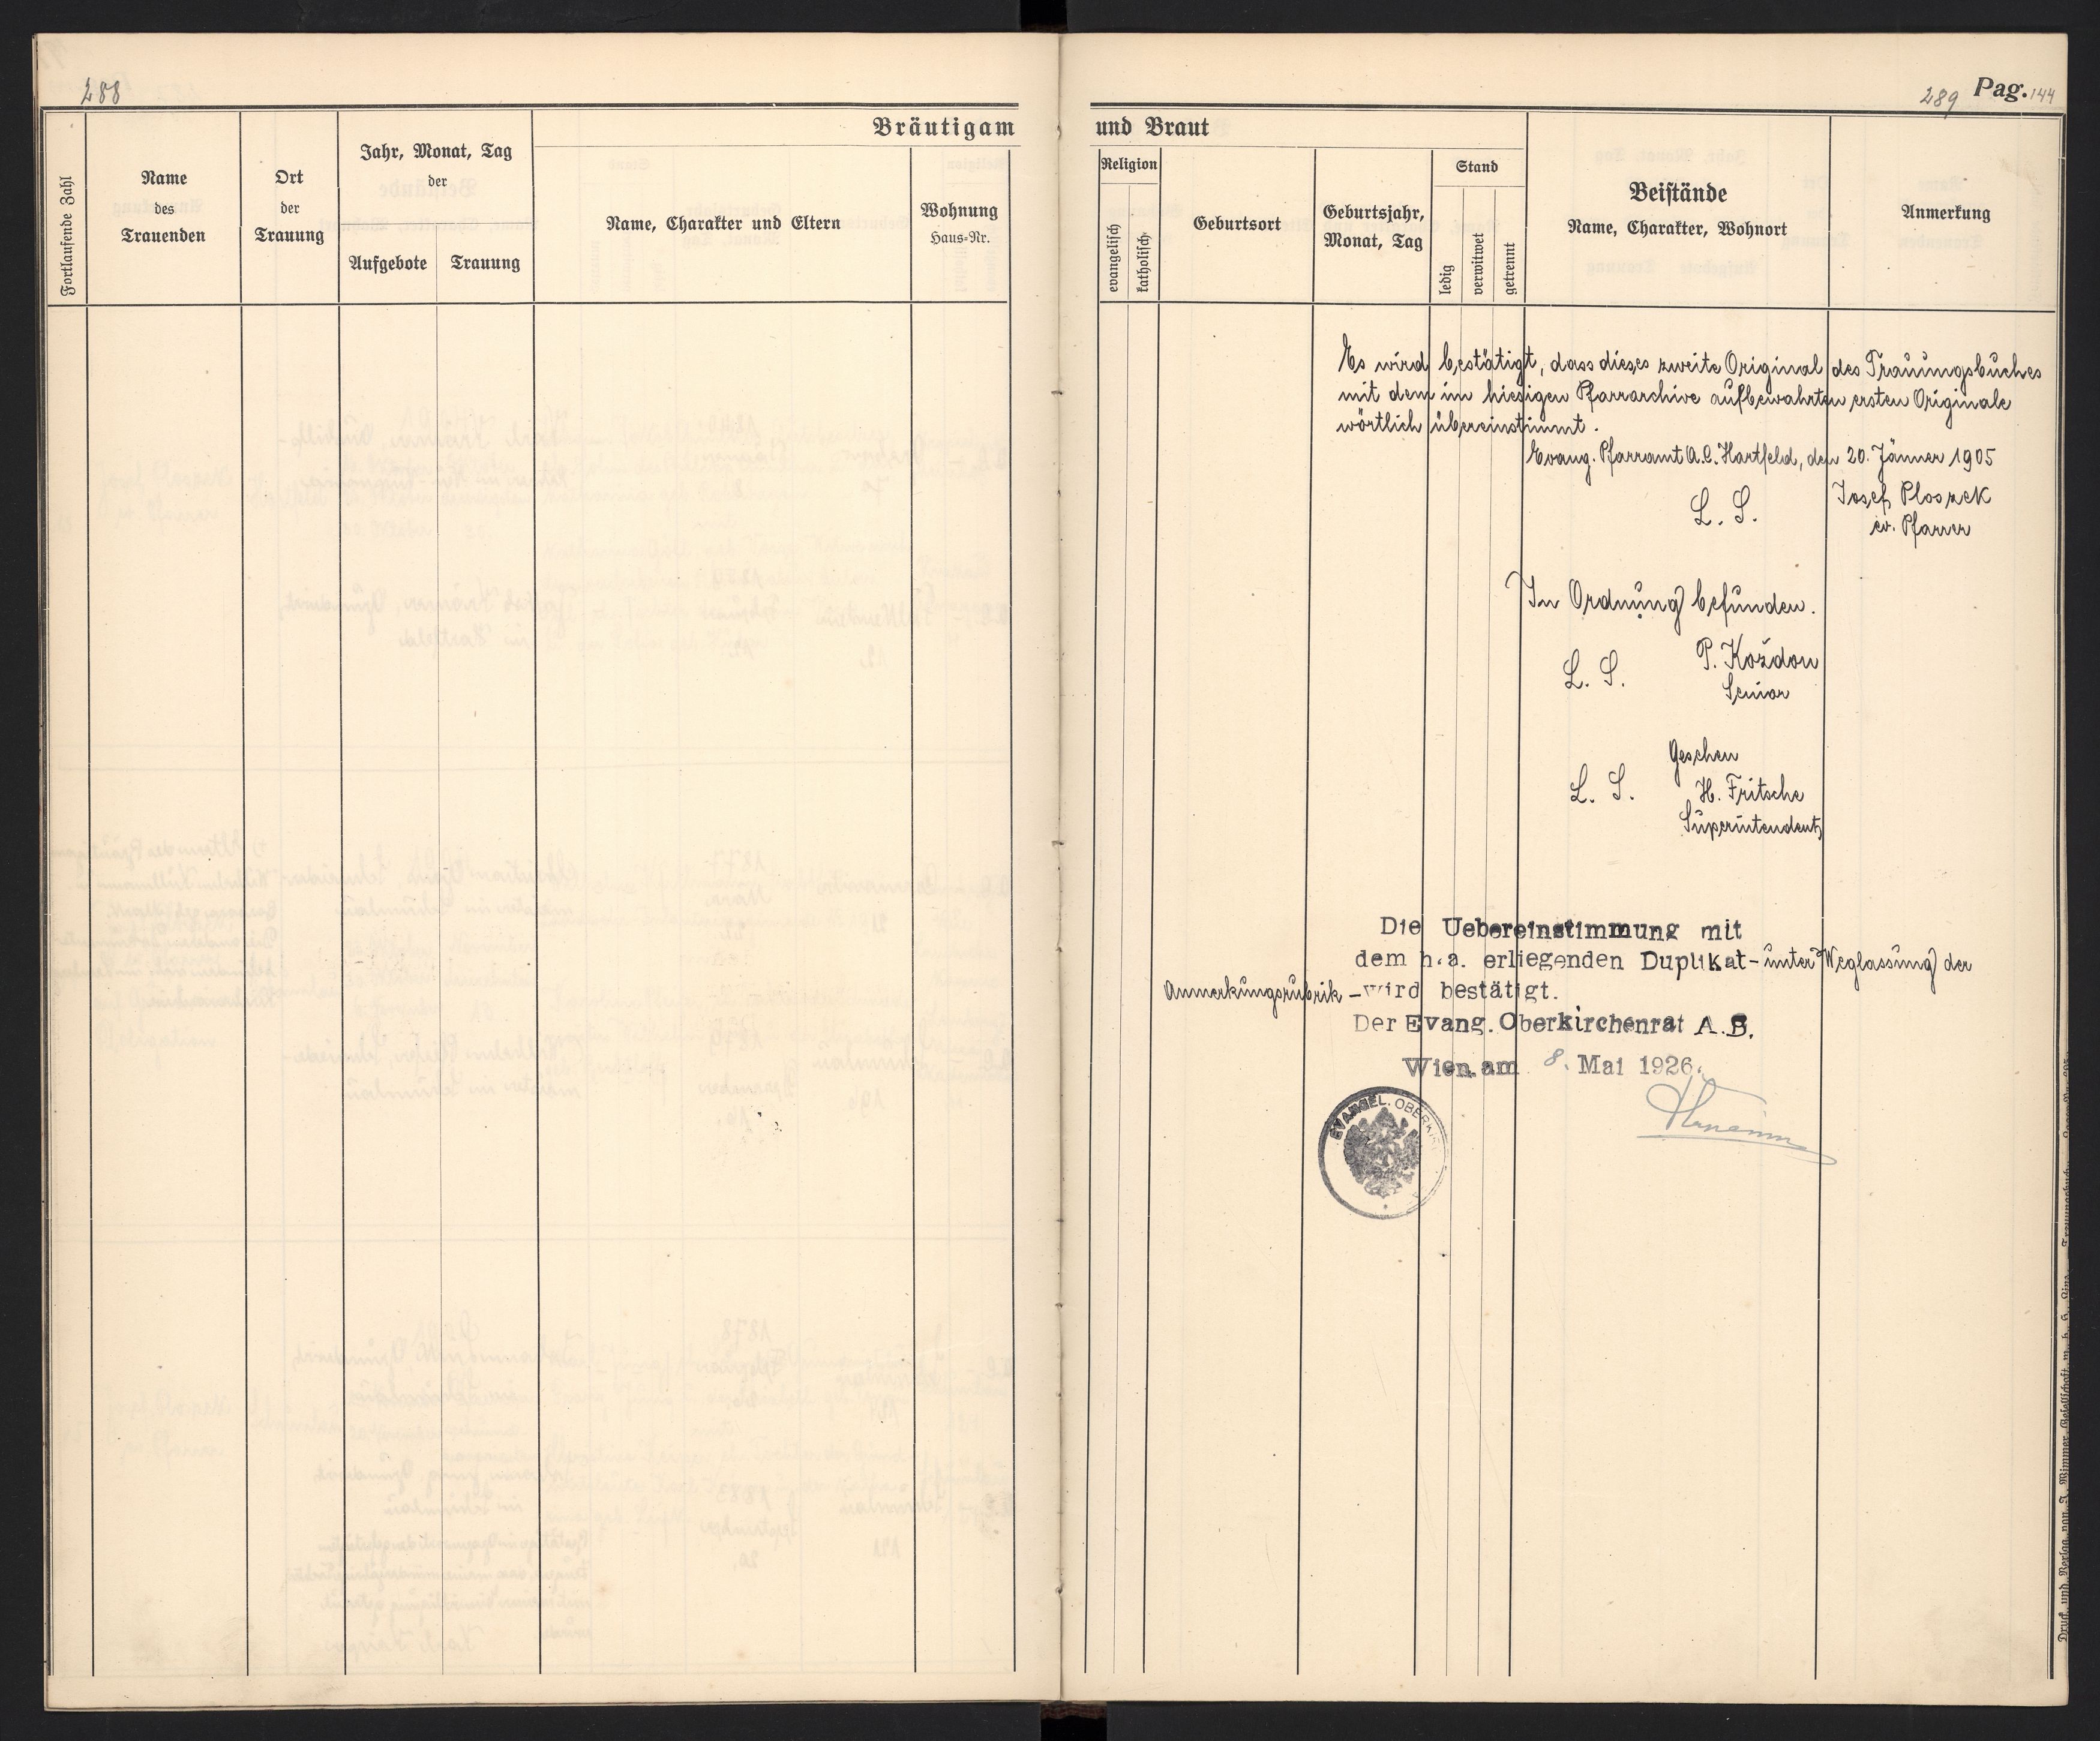 288
Bräutigam
Fortlaufende Zahl
Name
des
Trauenden
Ort
der
Trauung
Jahr, Monat, Tag
der
Aufgebote
Trauung
Name, Charakter und Eltern
Wohnung
Haus-Nr.
289 Pag. 144
und Braut
Religion
evangelisch
katholisch
Geburtsort
Geburtsjahr,
Monat, Tag
Stand
ledig
verwitwet
getrennt
Beistände
Name, Charakter, Wohnort
Anmerkung
Es wird bestätigt, dass dieses zweite Original des Trauungsbuches
mit dem im hiesigen Pfarrarchive aufbewahrten ersten Originale
wörtlich übereinstimmt.
Evang. Pfarramt A.C. Hartfeld, den 20. Jänner 1905
L. S.
Josef Ploszek
ev. Pfarrer
In Ordnung befunden.
L. S.
P. Koždon
Senior
Gesehen
L. S.
H. Fritsche
Superintendent
Die Uebereinstimmung mit
dem h.a. erliegenden Duplikat - unter Weglassung der
Anmerkungsrubrik - wird bestätigt.
Der Evang. Oberkirchenrat A.B.
Wien am 8. Mai 1926.
EVANGEL. OBERKIR
Druck und Verlag von J. Wimmer, Gesellschaft m. b. H., Linz.